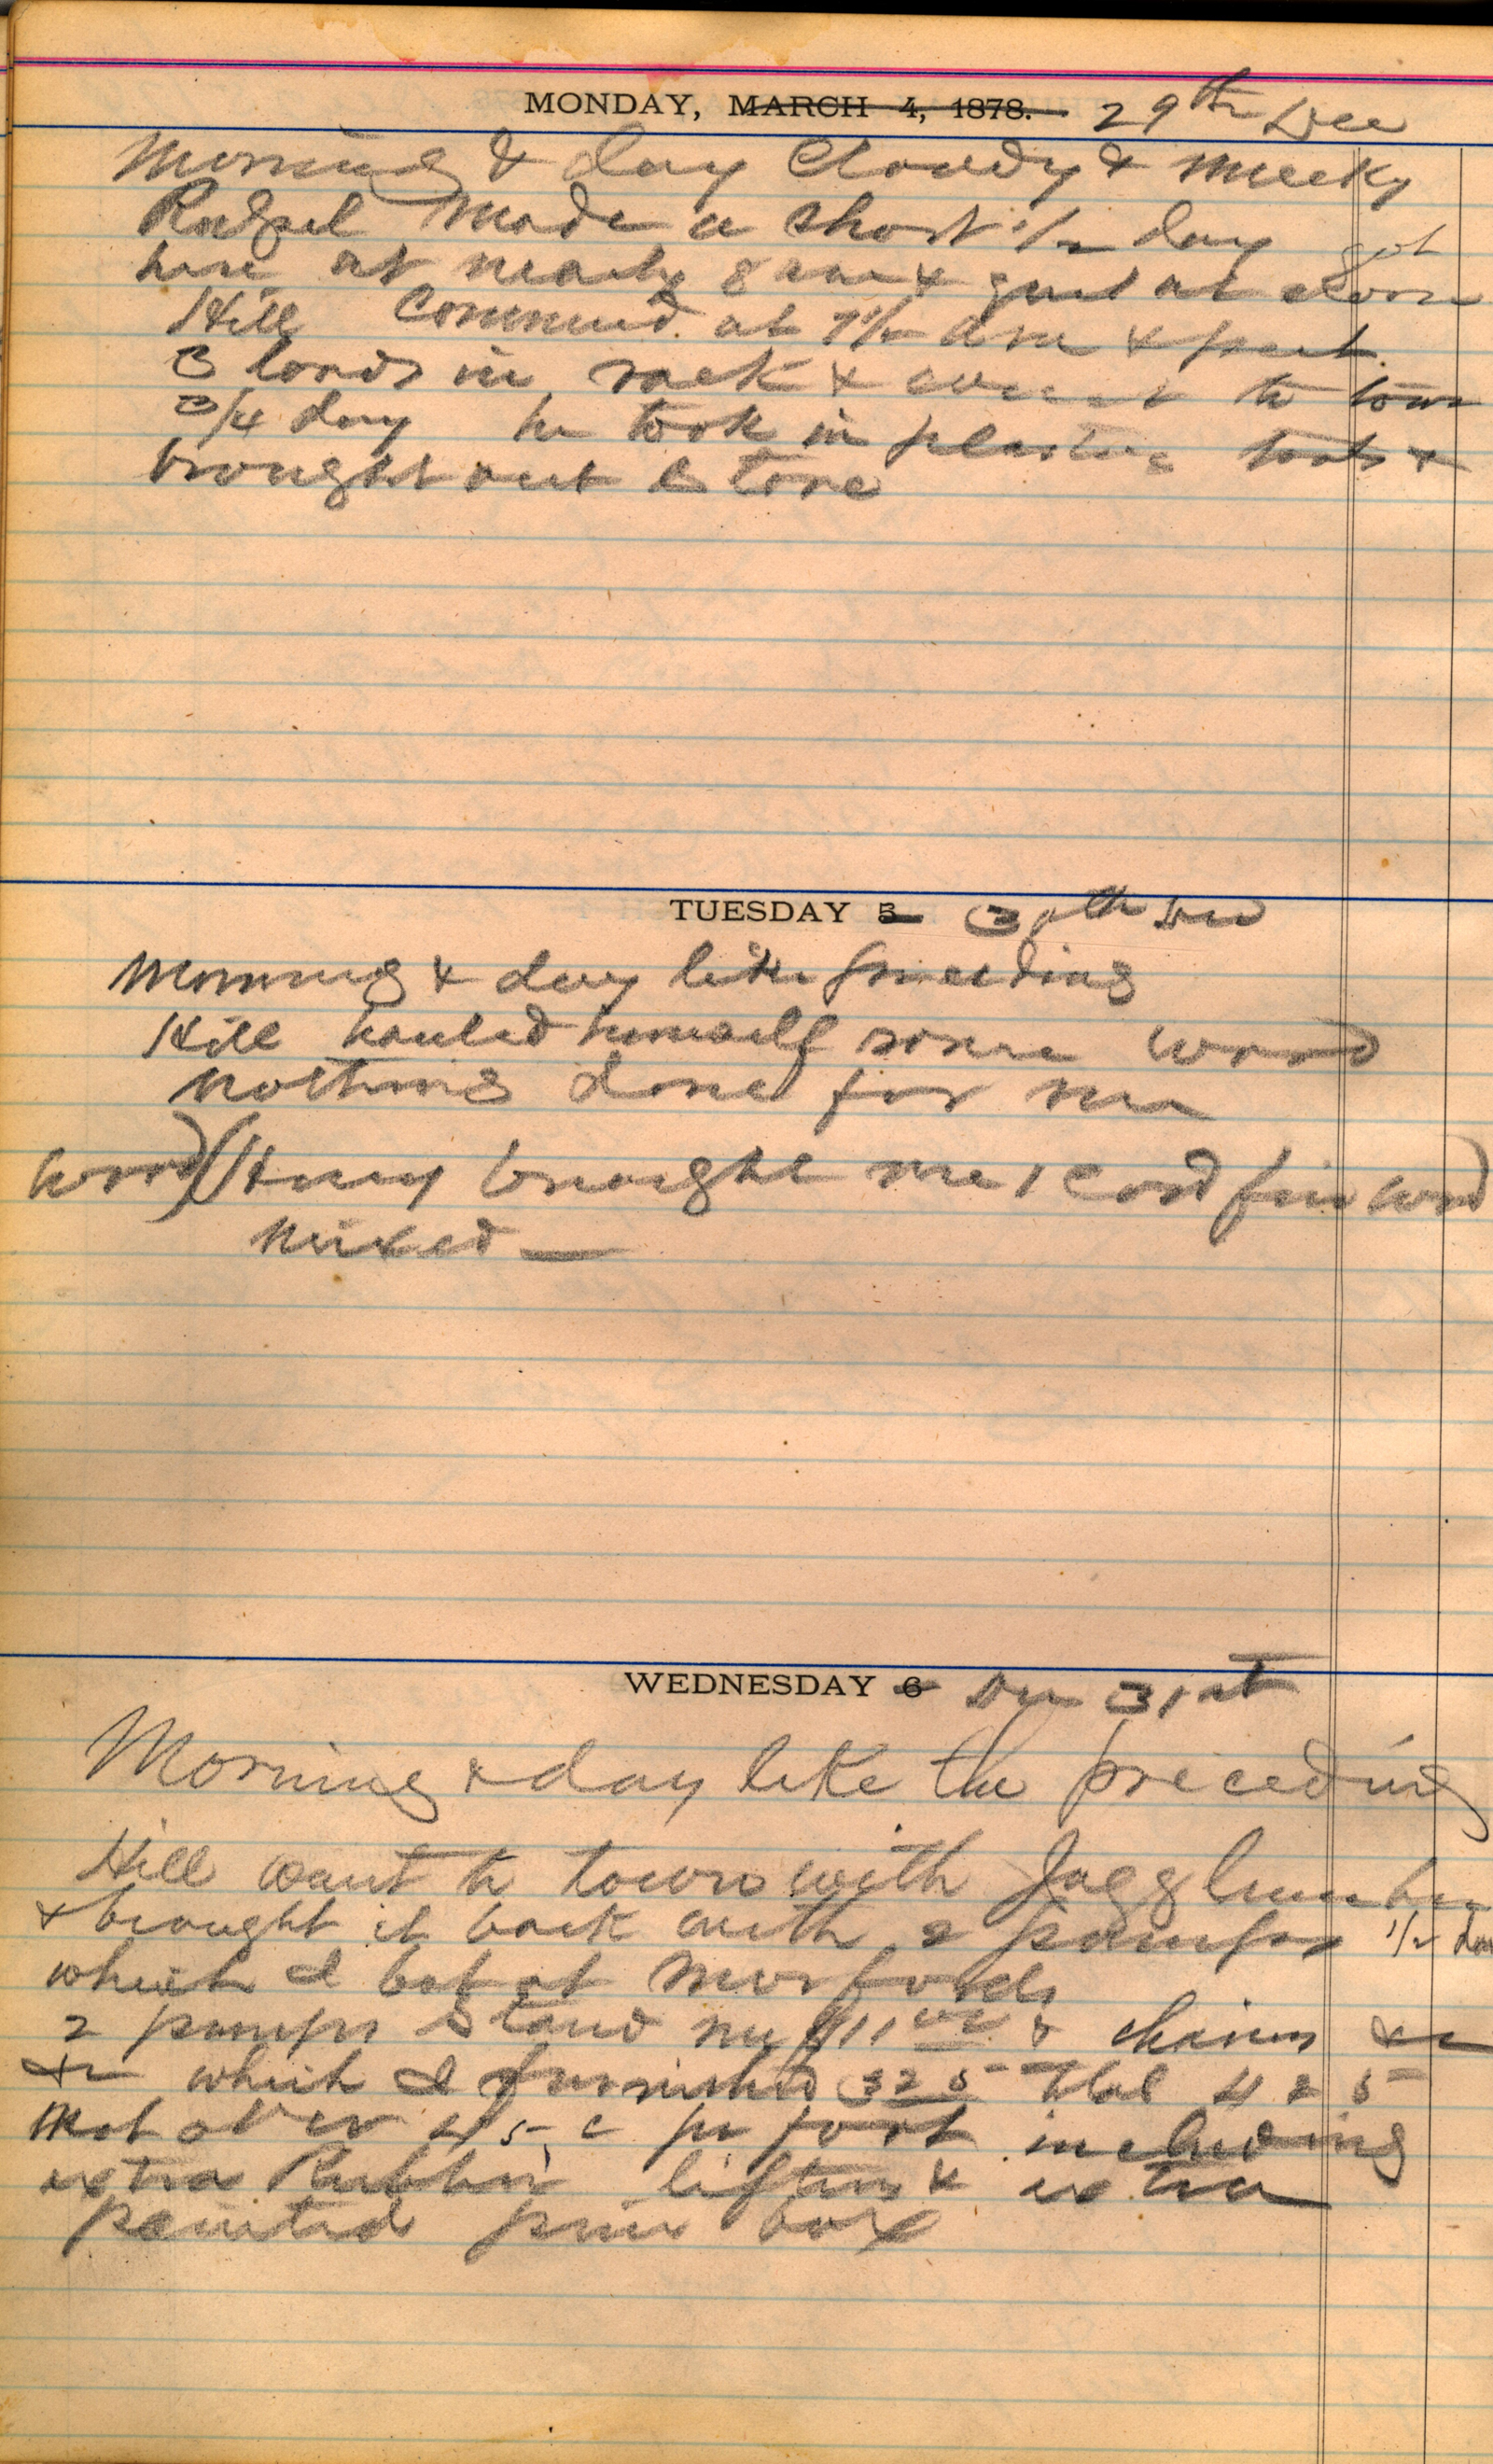 MONDAY, MARCH 4, 1878. 29th Dec
Morning & day Cloudy & Mucky
made a short 1/2 day got
here at nearly 8 am & quit at
Hill Commenced at 7 1/2 am & put
3 loads in rack & went to town
3/4 day he took in plastering tools &
brought out Stone
TUESDAY 5 30th Dec
Morning & day like preceding
Hill hauled himself some wood
nothing done for me
wood) (Huey brought me 1 cord fire wood
mixed —
WEDNESDAY 6 Dec 31st
Morning & day like the preceding
Hill went to town with Jagg lumber
& brought it back with 2 pumps 1/2 day
which I bot at Morfords
2 pumps Stand me $11 00 & chains &c
&c which I furnished 325 total 425
Not over 45 c per foot including
extra Rubber lifters & extra
Painted pine box